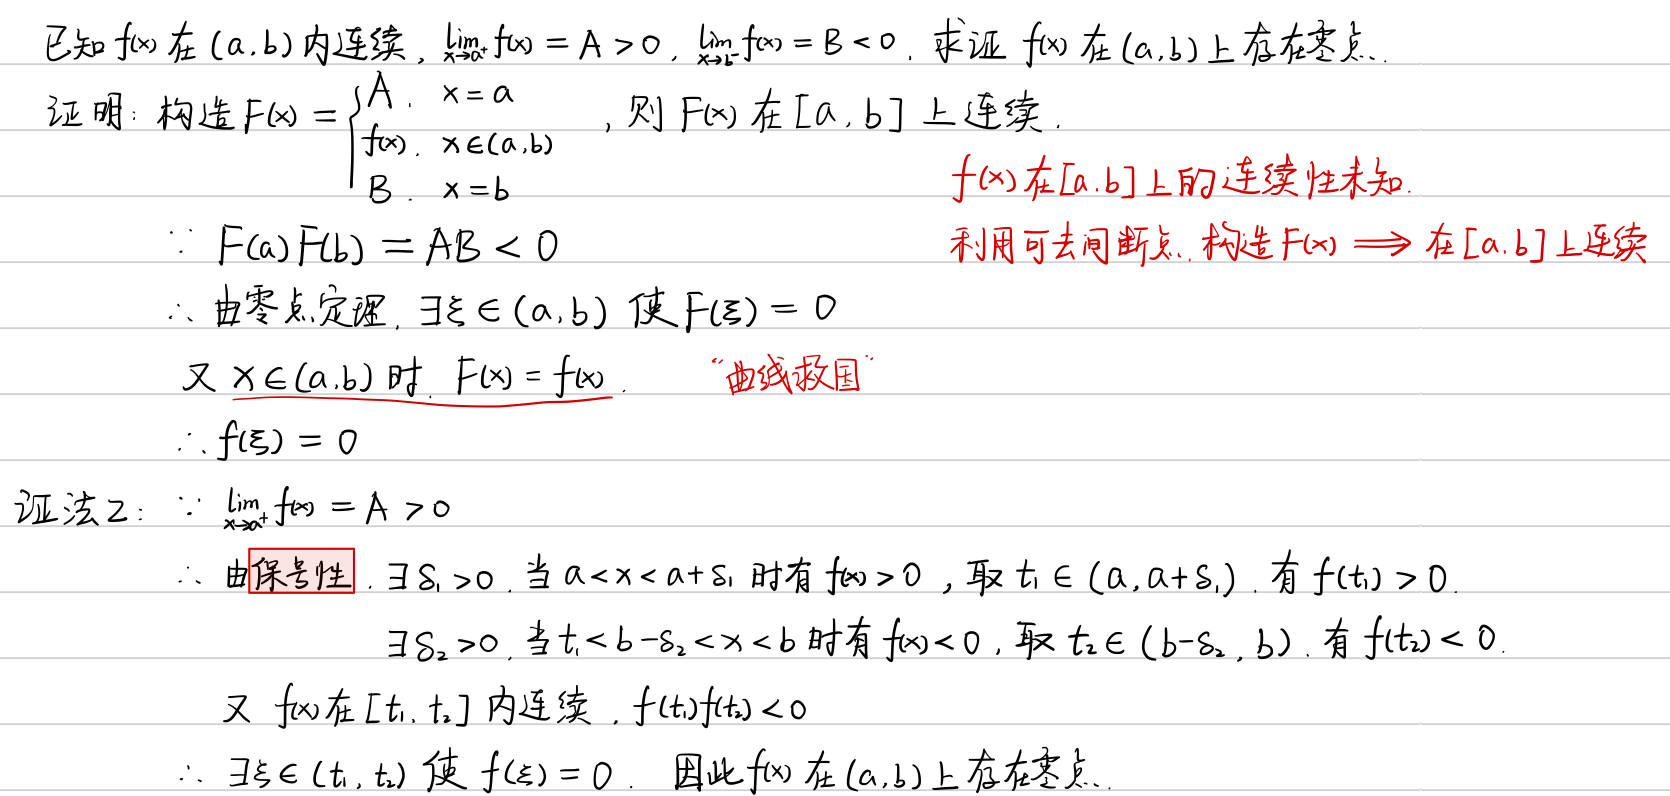 已知 f(x) 在 (a,b) 内连续, lim_{x→a⁺} f(x) = A > 0, lim_{x→b⁻} f(x) = B < 0, 求证 f(x) 在 (a,b) 上存在零点.
证明: 构造 F(x) = { A, x = a
f(x), x∈(a,b) , 则 F(x) 在 [a,b] 上连续.
B, x = b
f(x) 在 [a,b] 上的连续性未知.
∵ F(a)F(b) = AB < 0
利用可去间断点, 构造 F(x) ⟹ 在 [a,b] 上连续
∴ 由零点定理, ∃ξ∈(a,b) 使 F(ξ) = 0
又 x∈(a,b) 时, F(x) = f(x). “曲线救国”
∴ f(ξ) = 0
证法2: ∵ lim_{x→a⁺} f(x) = A > 0
∴ 由保号性, ∃δ₁>0, 当 a<x<a+δ₁ 时有 f(x)>0, 取 t₁∈(a,a+δ₁), 有 f(t₁)>0.
∃δ₂>0, 当 t₁<b-δ₂<x<b 时有 f(x)<0, 取 t₂∈(b-δ₂,b), 有 f(t₂)<0.
又 f(x) 在 [t₁,t₂] 内连续, f(t₁)f(t₂)<0
∴ ∃ξ∈(t₁,t₂) 使 f(ξ) = 0. 因此 f(x) 在 (a,b) 上存在零点.